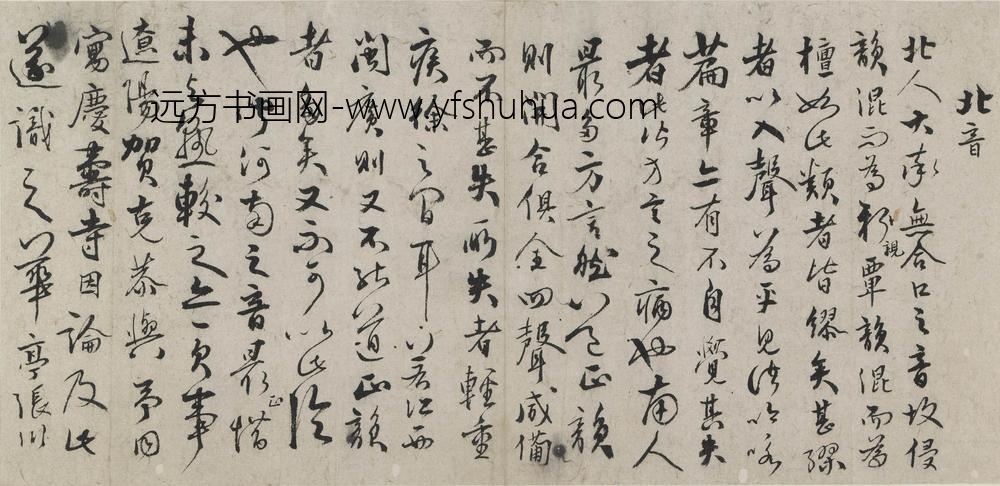 北音
北人大率無合口之音故侵
韻混而為親覃韻混而為
檀如此類者皆繆矣甚
者以入聲為平見諸吟咏
篇章亦有不自覺其失
者此皆方言之病也南人
最多方言然以之正韻
則開合俱全四聲咸備
而不甚失所失者輕重
疾徐之間耳
閩廣則又不能道正韻
者多矣又不可以此論
也河南之音最正惜
未與熟較之之一負事
遼陽賀克恭與予同
寓慶壽寺因論及此
遂識之華亭張
遠方书画网-www.yfshuhua.com